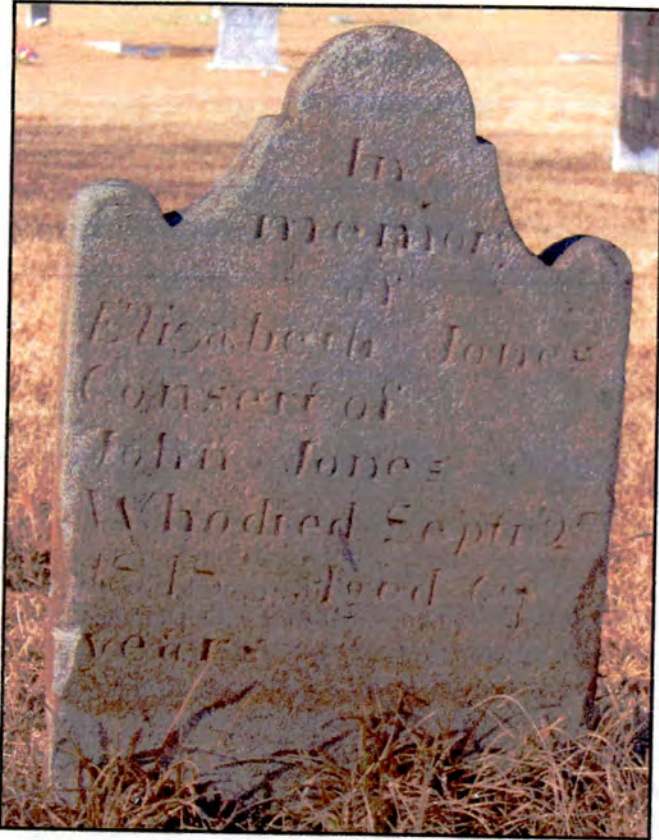 In
memory
of
Elisabeth Jones
Consert of
John Jones
Who died Septr
Aged 69
years